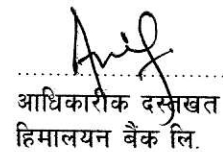 आधिकारीक दस्तखत
हिमालयन बैंक लि.